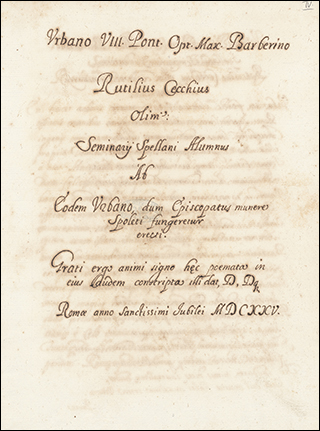 Vrbano VIII. Pont. Opt. Max. Barberino
Rutilius Cecchius
Olim
Seminarij Spellani Alumnus
Ab
Eodem Vrbano, dum Episcopatus munere
Spoleti fungeretur
erecti.
Grati ergo animi signo hęc poemata in
eius laudem conscripta illi dat, D, Dq
Romæ anno Sanctissimi Iubilei MDCXXV.